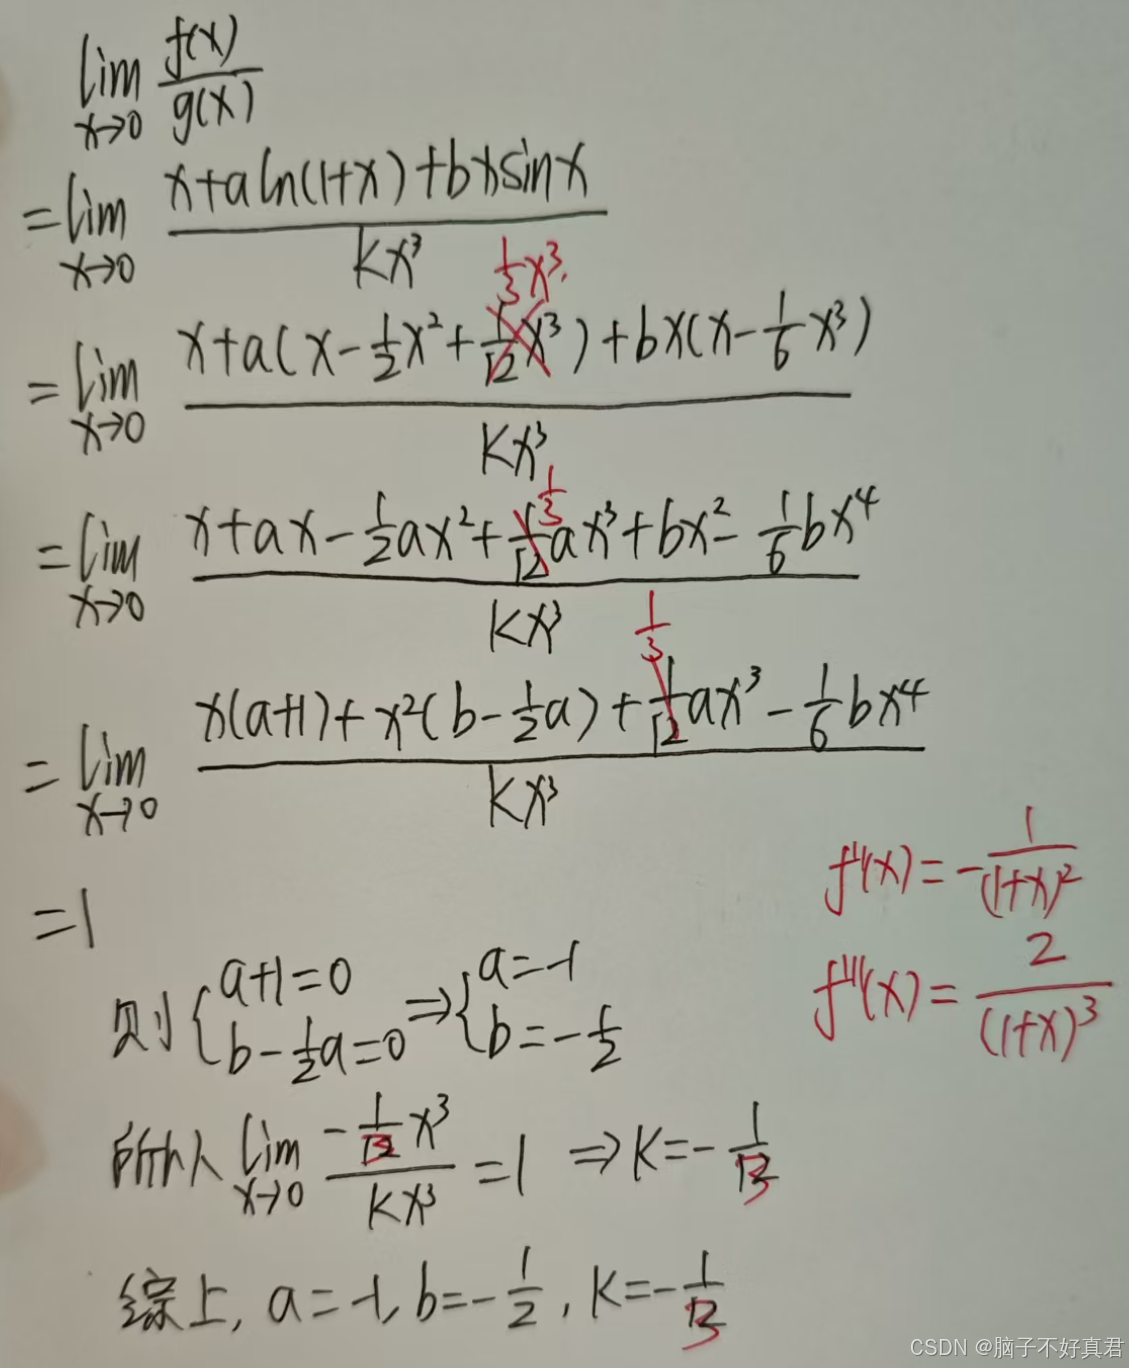 lim x→0 f(x)/g(x)
= lim x→0 (x+a ln(1+x)+bx sin x)/(kx³)
1/3 x³.
= lim x→0 (x+a(x-1/2 x²+1/12 x³)+bx(x-1/6 x³))/(kx³)
1/3
= lim x→0 (x+ax-1/2 ax²+1/12 ax³+bx²-1/6 bx⁴)/(kx³)
1/3
= lim x→0 (x(a+1)+x²(b-1/2 a)+1/12 ax³-1/6 bx⁴)/(kx³)
f''(x)=-1/(1+x)²
=1
f'''(x)=2/(1+x)³
则{a+1=0 b-1/2 a=0 ⇒{a=-1 b=-1/2
所以 lim x→0 (-1/3 x³)/(kx³)=1 ⇒k=-1/3
综上, a=-1, b=-1/2, k=-1/3
CSDN @脑子不好真君